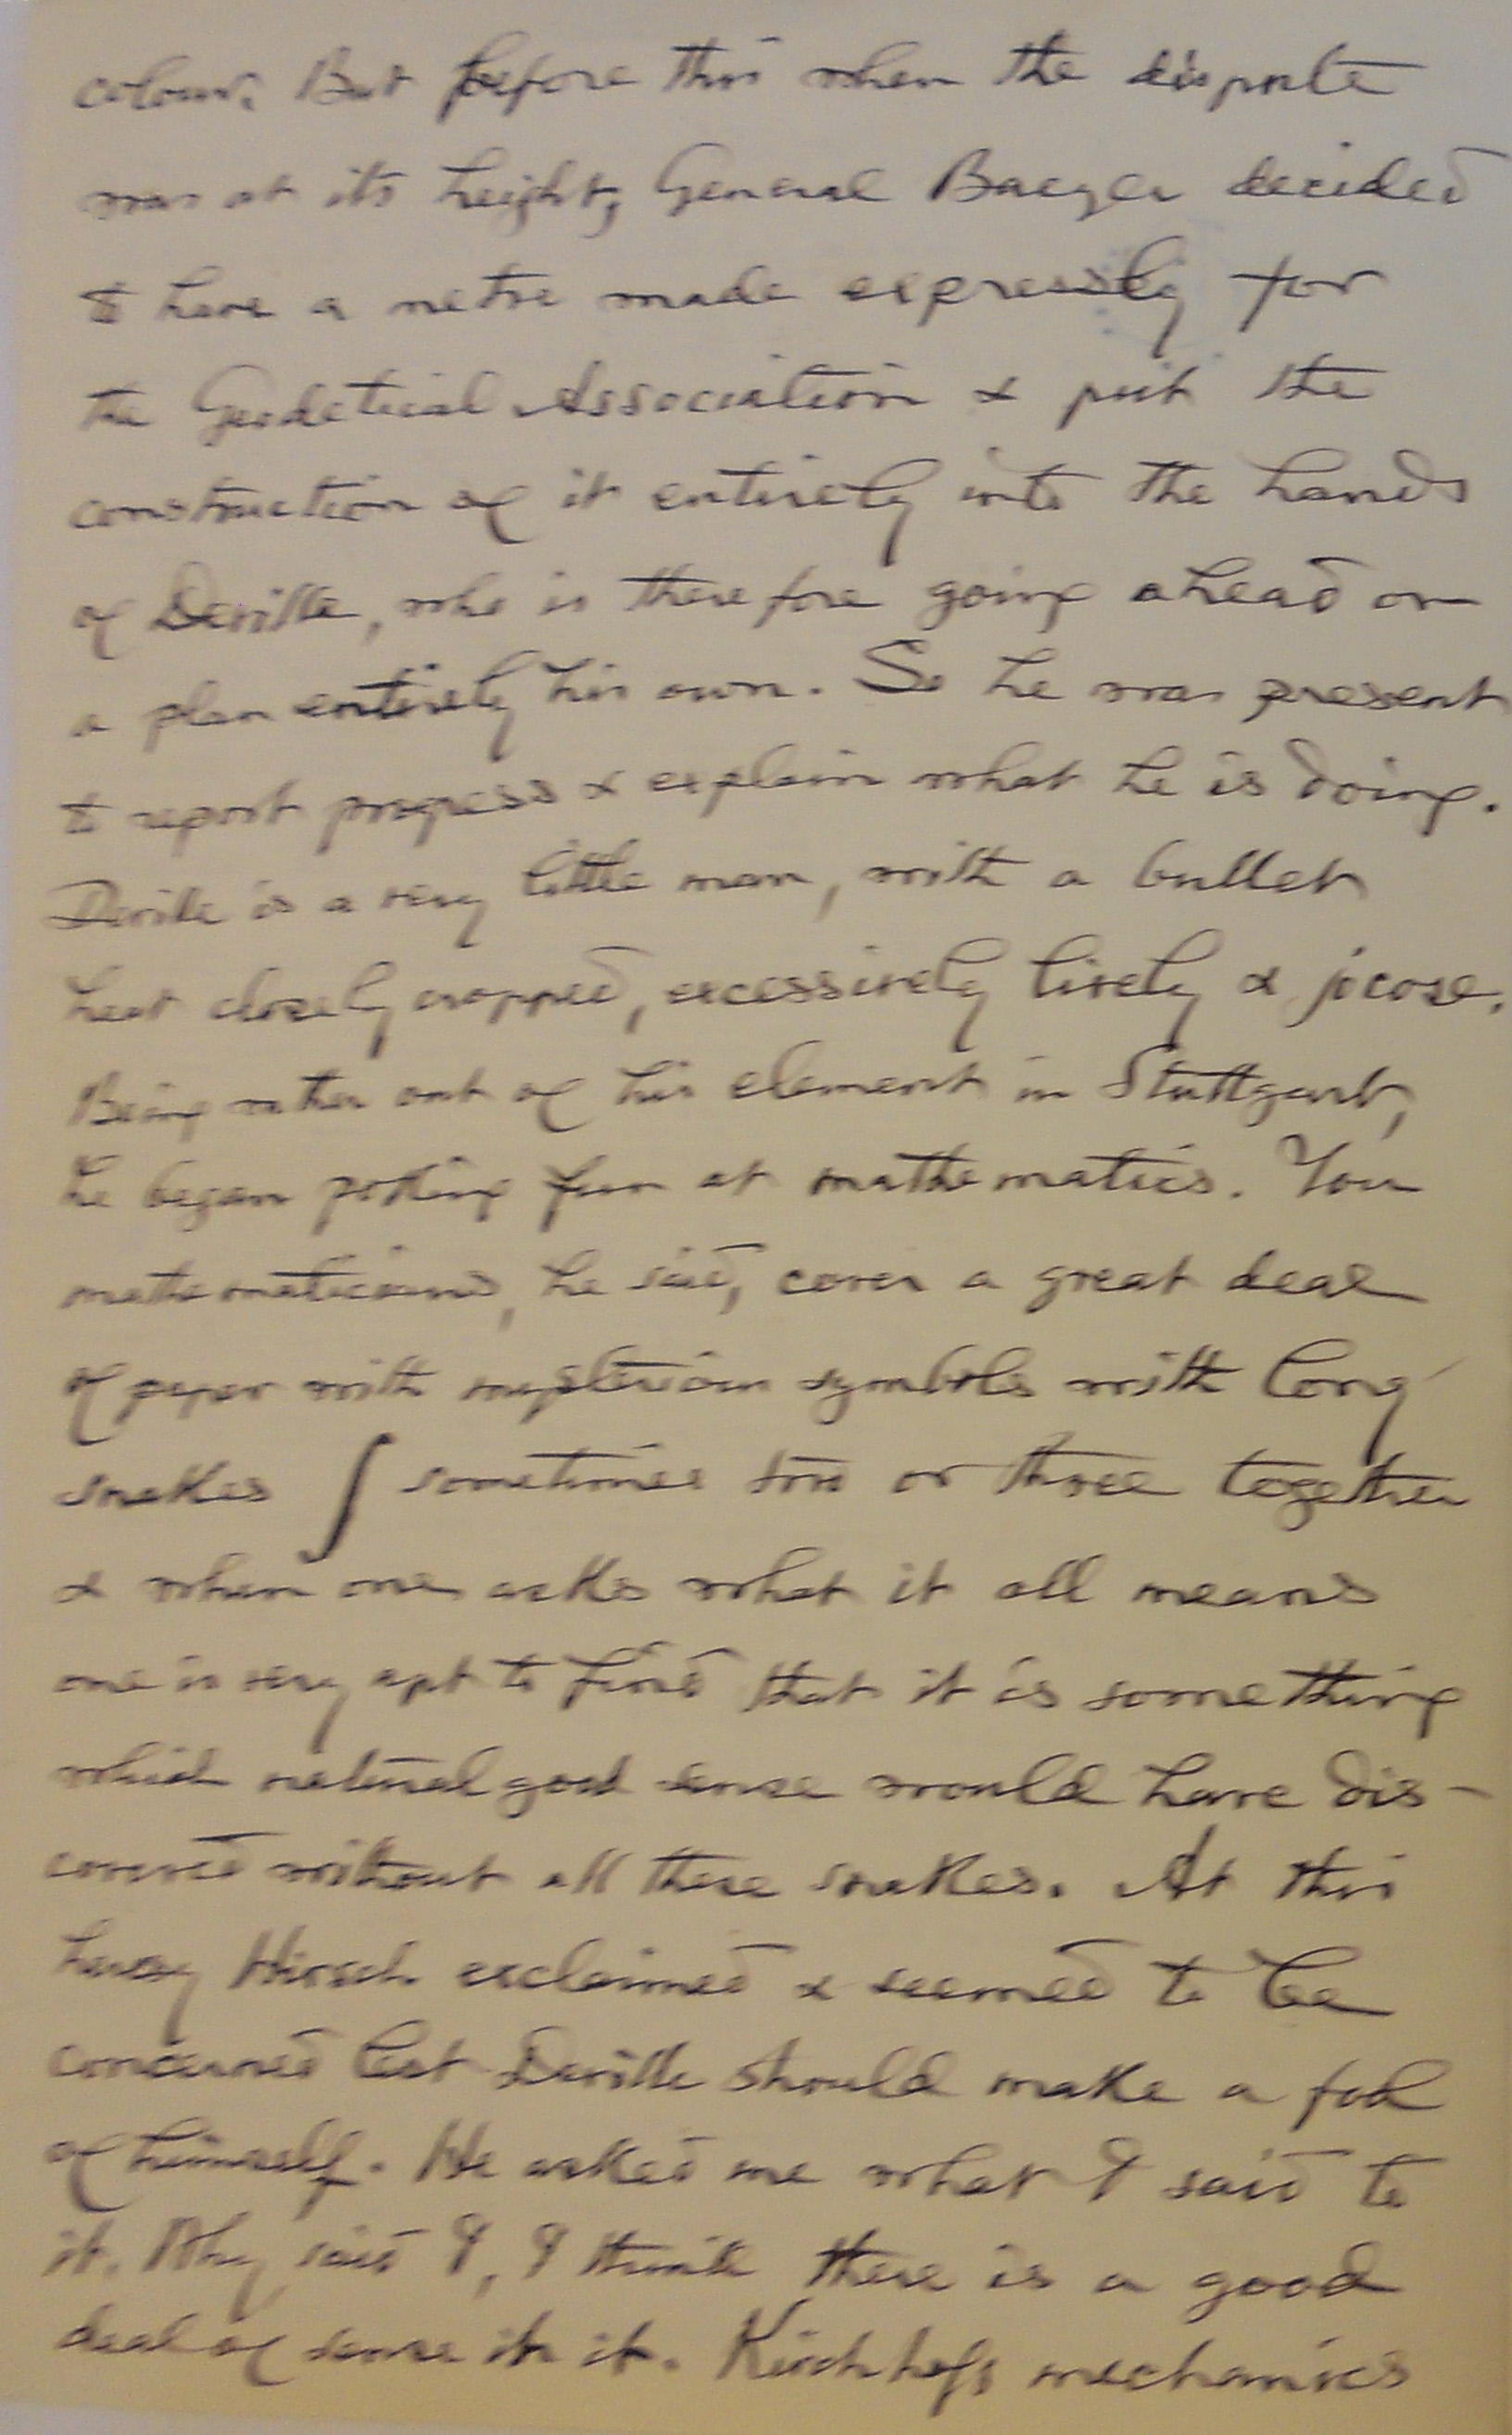 colour. But before this when the dispute
was at its height, General Baeyer decided
to have a metre made expressly for
the Geodetical Association & put the
construction of it entirely into the hands
of Deville, who is therefore going ahead on
a plan entirely his own. So he was present
to report progress & explain what he is doing.
Deville is a very little man, with a bullet
head closely cropped, excessively lively & jocose.
Being rather out of his element in Stuttgart,
he began poking fun at mathematics. You
mathematicians, he said, cover a great deal
of paper with mysterious symbols with long
snakes ∫ sometimes two or three together
& when one asks what it all means
one is very apt to find that it is something
which natural good sense would have dis-
covered without all these snakes. At this
heresy Hirsch exclaimed & seemed to be
concerned lest Deville should make a fool
of himself. He asked me what I said to
it. Why, said I, I think there is a good
deal of sense in it. Kirchhoffs mechanics